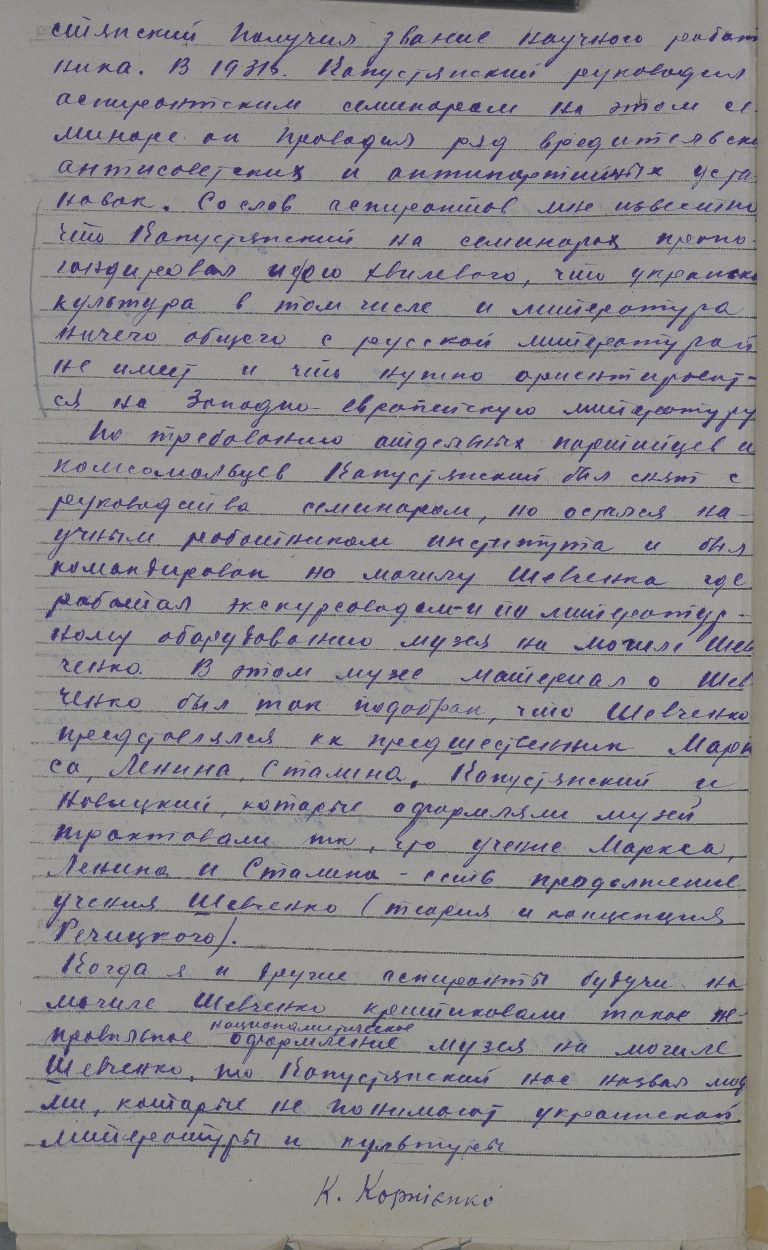 стянский получил звание научного работ
ника. В 1931г. Капустянский руководил
аспирантским семинаром на этом се
минаре он проводил ряд вредительски
антисоветских и антипартийных уста
новок. Со слов аспирантов мне известно
что Капустянский на семинарах пропо-
гандировал идею Хвилевого, что украинска
культура в том числе и литература
ничего общего с русской литературой
не имеет и что нужно ориентироват-
ся на Западно-европейскую литературу
По требованию отдельных партийцев и
комсомольцев Капустянский был снят с
руководства семинаром, но остался на-
учным работником института и был
командирован на могилу Шевченка где
работал экскурсоводом и по литератур-
ному оборудованию музея на могиле Шев
ченко. В этом музе материал о Шев
ченко был так подобран, что Шевченко
представлялся кк предшественник Марк
са, Ленина, Сталина. Капустянский и
Новицкий, которые оформляли музей
трактовали тк, что учение Маркса,
Ленина и Сталина - есть продолжение
учения Шевченко (теория и концепция
Речицкого).
Когда я и другие аспиранты будучи на
могиле Шевченко критиковали такое не-
правильное националистическое оформление музея на могиле
Шевченко, то Капустянский нас назвал люд
ми, которые не понимают украинской
литературы и культуры
К. Корнієнко